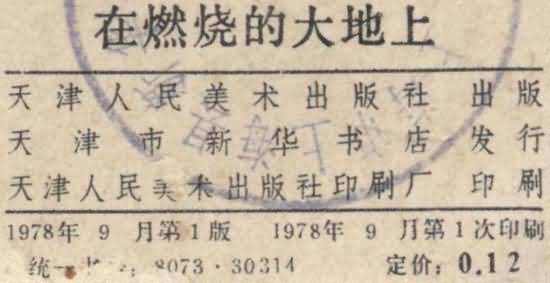 在燃烧的大地上
天津人民美术出版社 出版
天津市新华书店发行
天津人民美术出版社印刷厂 印刷
1978年9月第1版 1978年9月第1次印刷
统一书号：8073·30314 定价：0.12